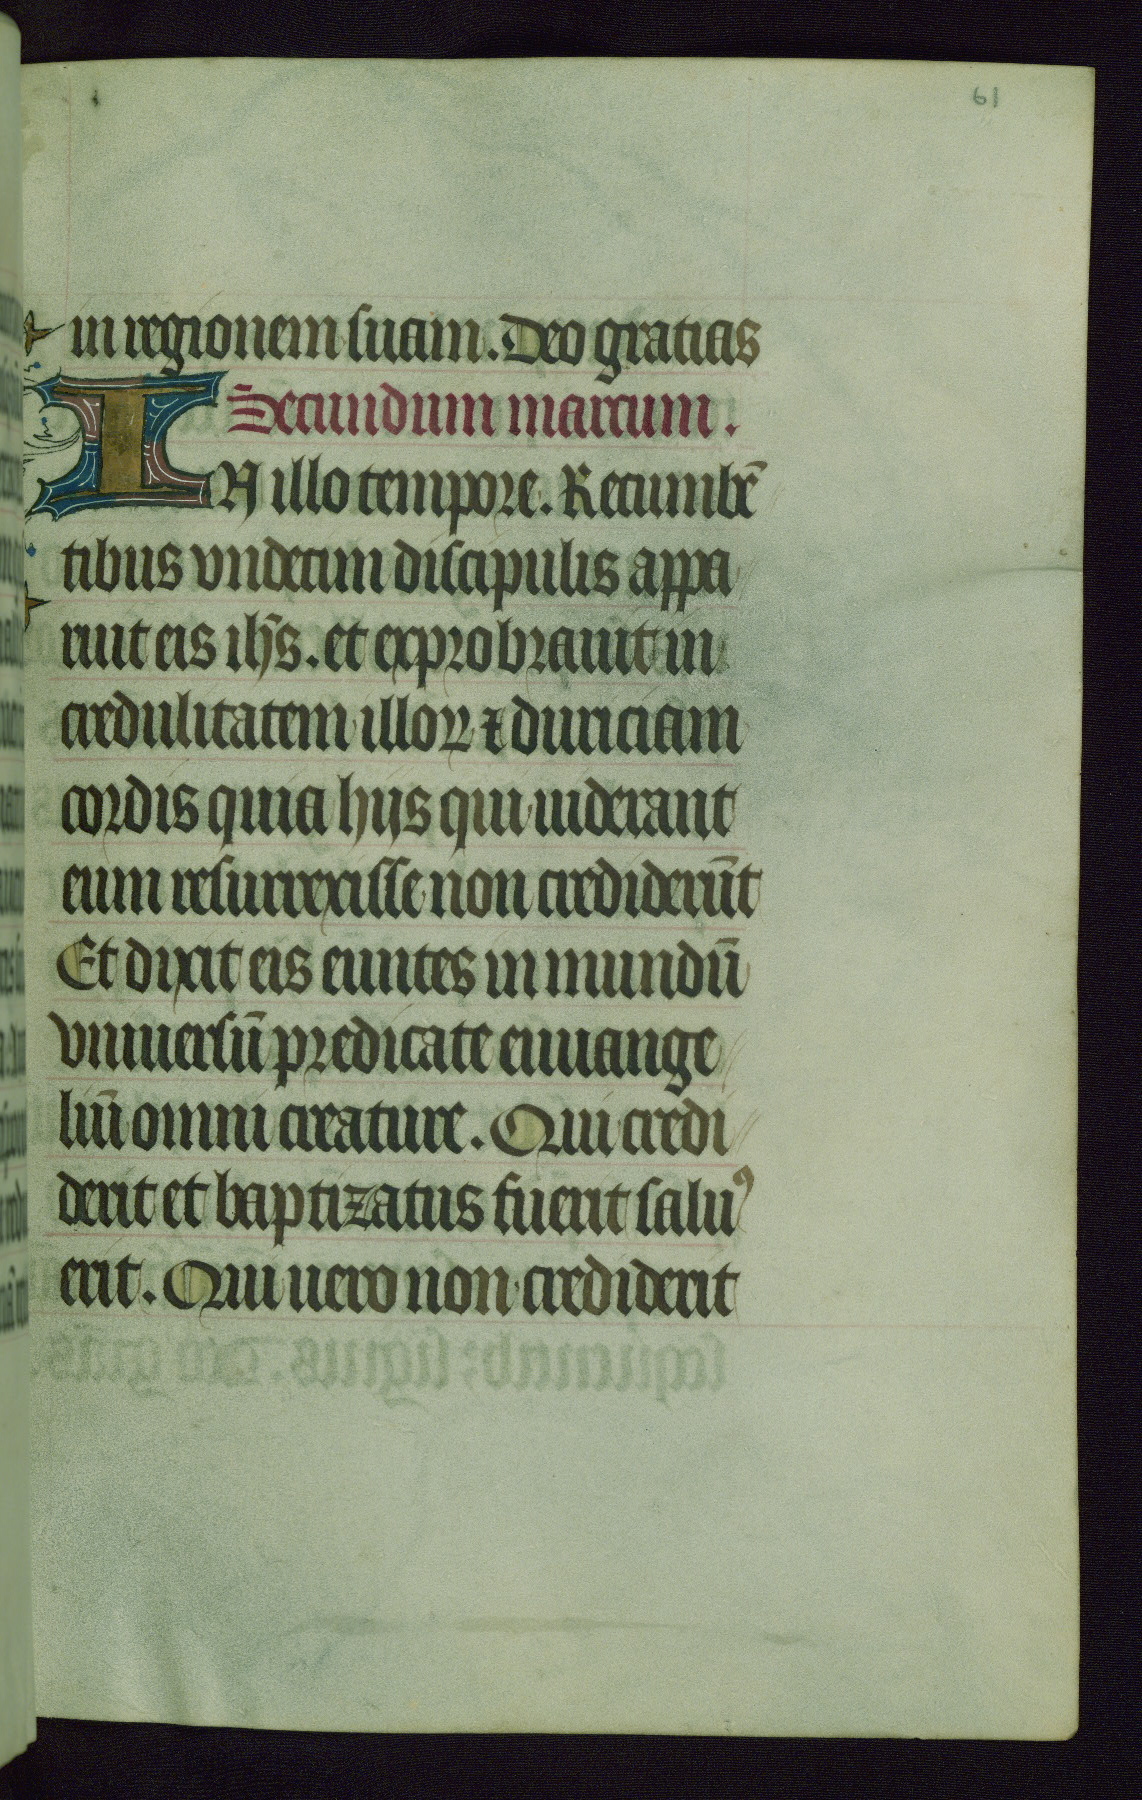 61
in regionem suam. Deo gratias
Secundum marcum.
IN illo tempore. Recumbē
tibus vndecim discipulis appa
ruit eis ihs̄. et exprobrauit in
credulitatem illoꝝ ⁊ duriciam
cordis quia hijs qui uiderant
eum resurrexisse non crediderūt
Et dixit eis euntes in mundū
vniuersū predicate euuange
liū omni creature. Qui credi
derit et baptizatus fuerit saluꝰ
erit. Qui uero non crediderit